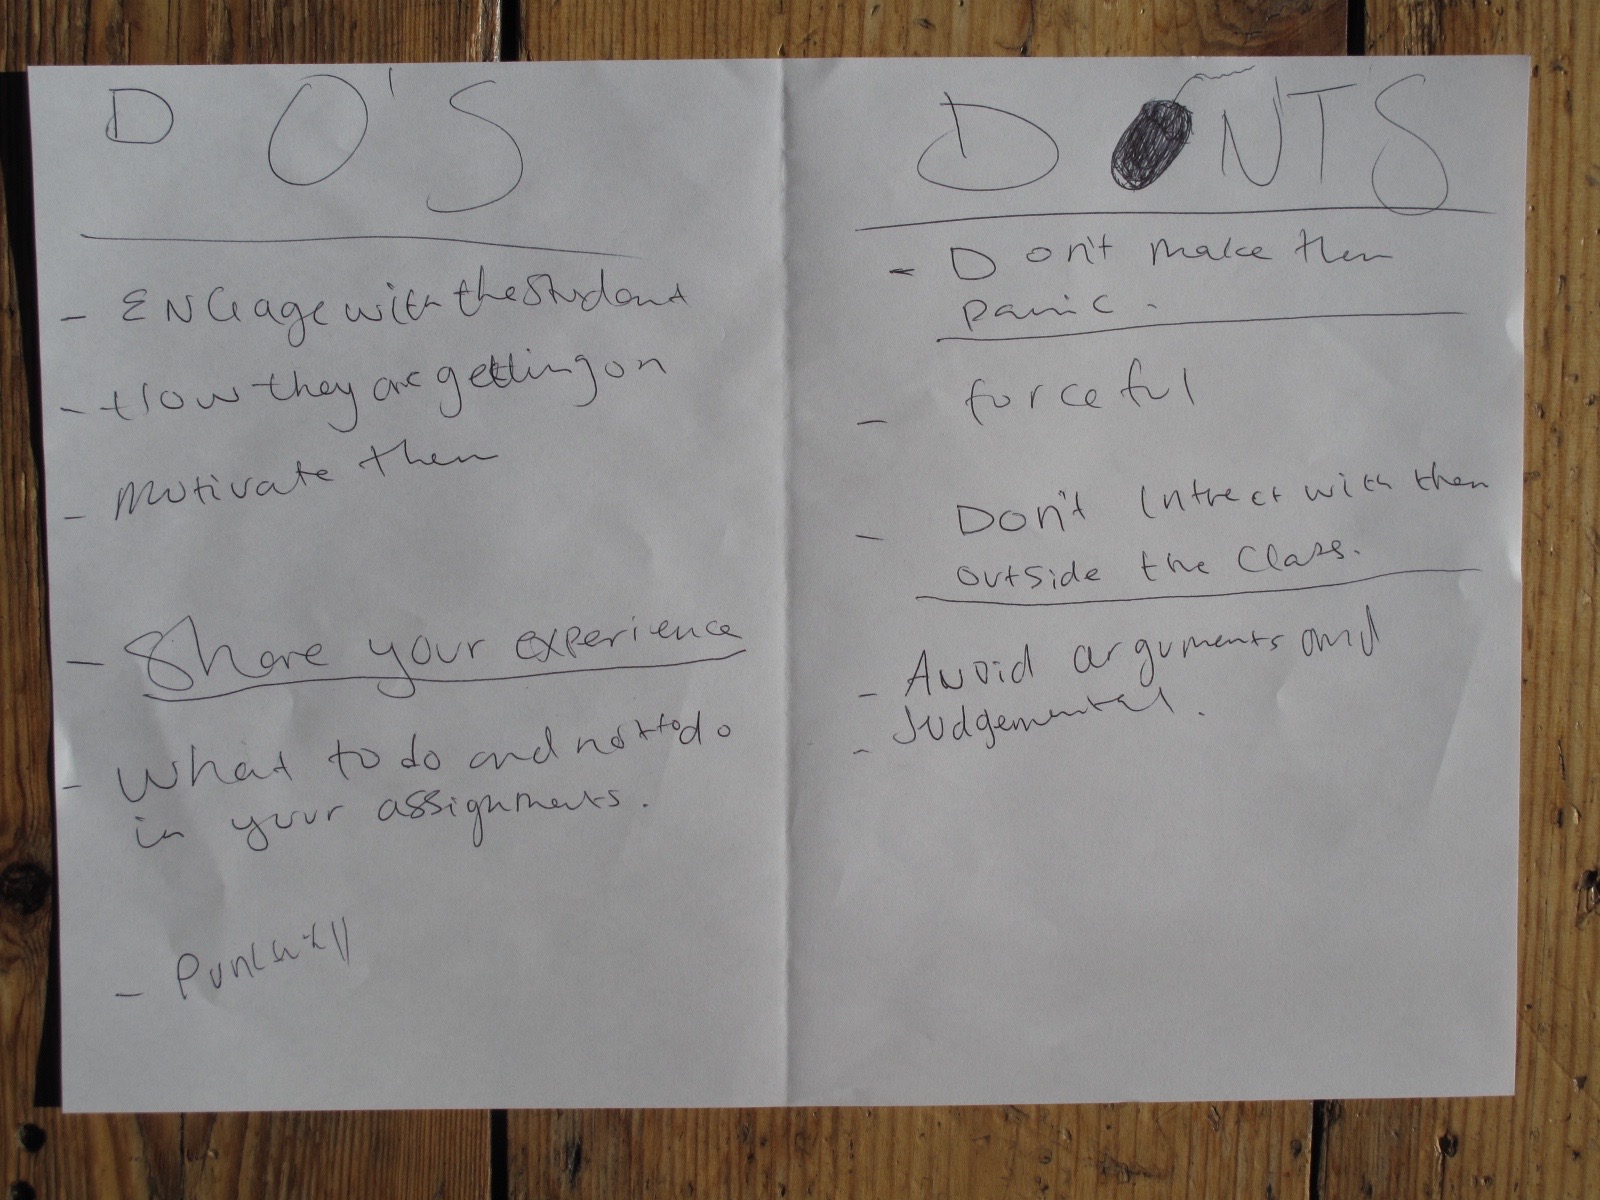 DO'S
- ENGage with the student
- How they are getting on
- Motivate them
- Share your experience
- What to do and not to do
in your assignments.
-
DONTS
- Don't make them
panic.
- forceful
- Don't Intrect with them
outside the Class.
- Avoid arguments and
- Judgemental.